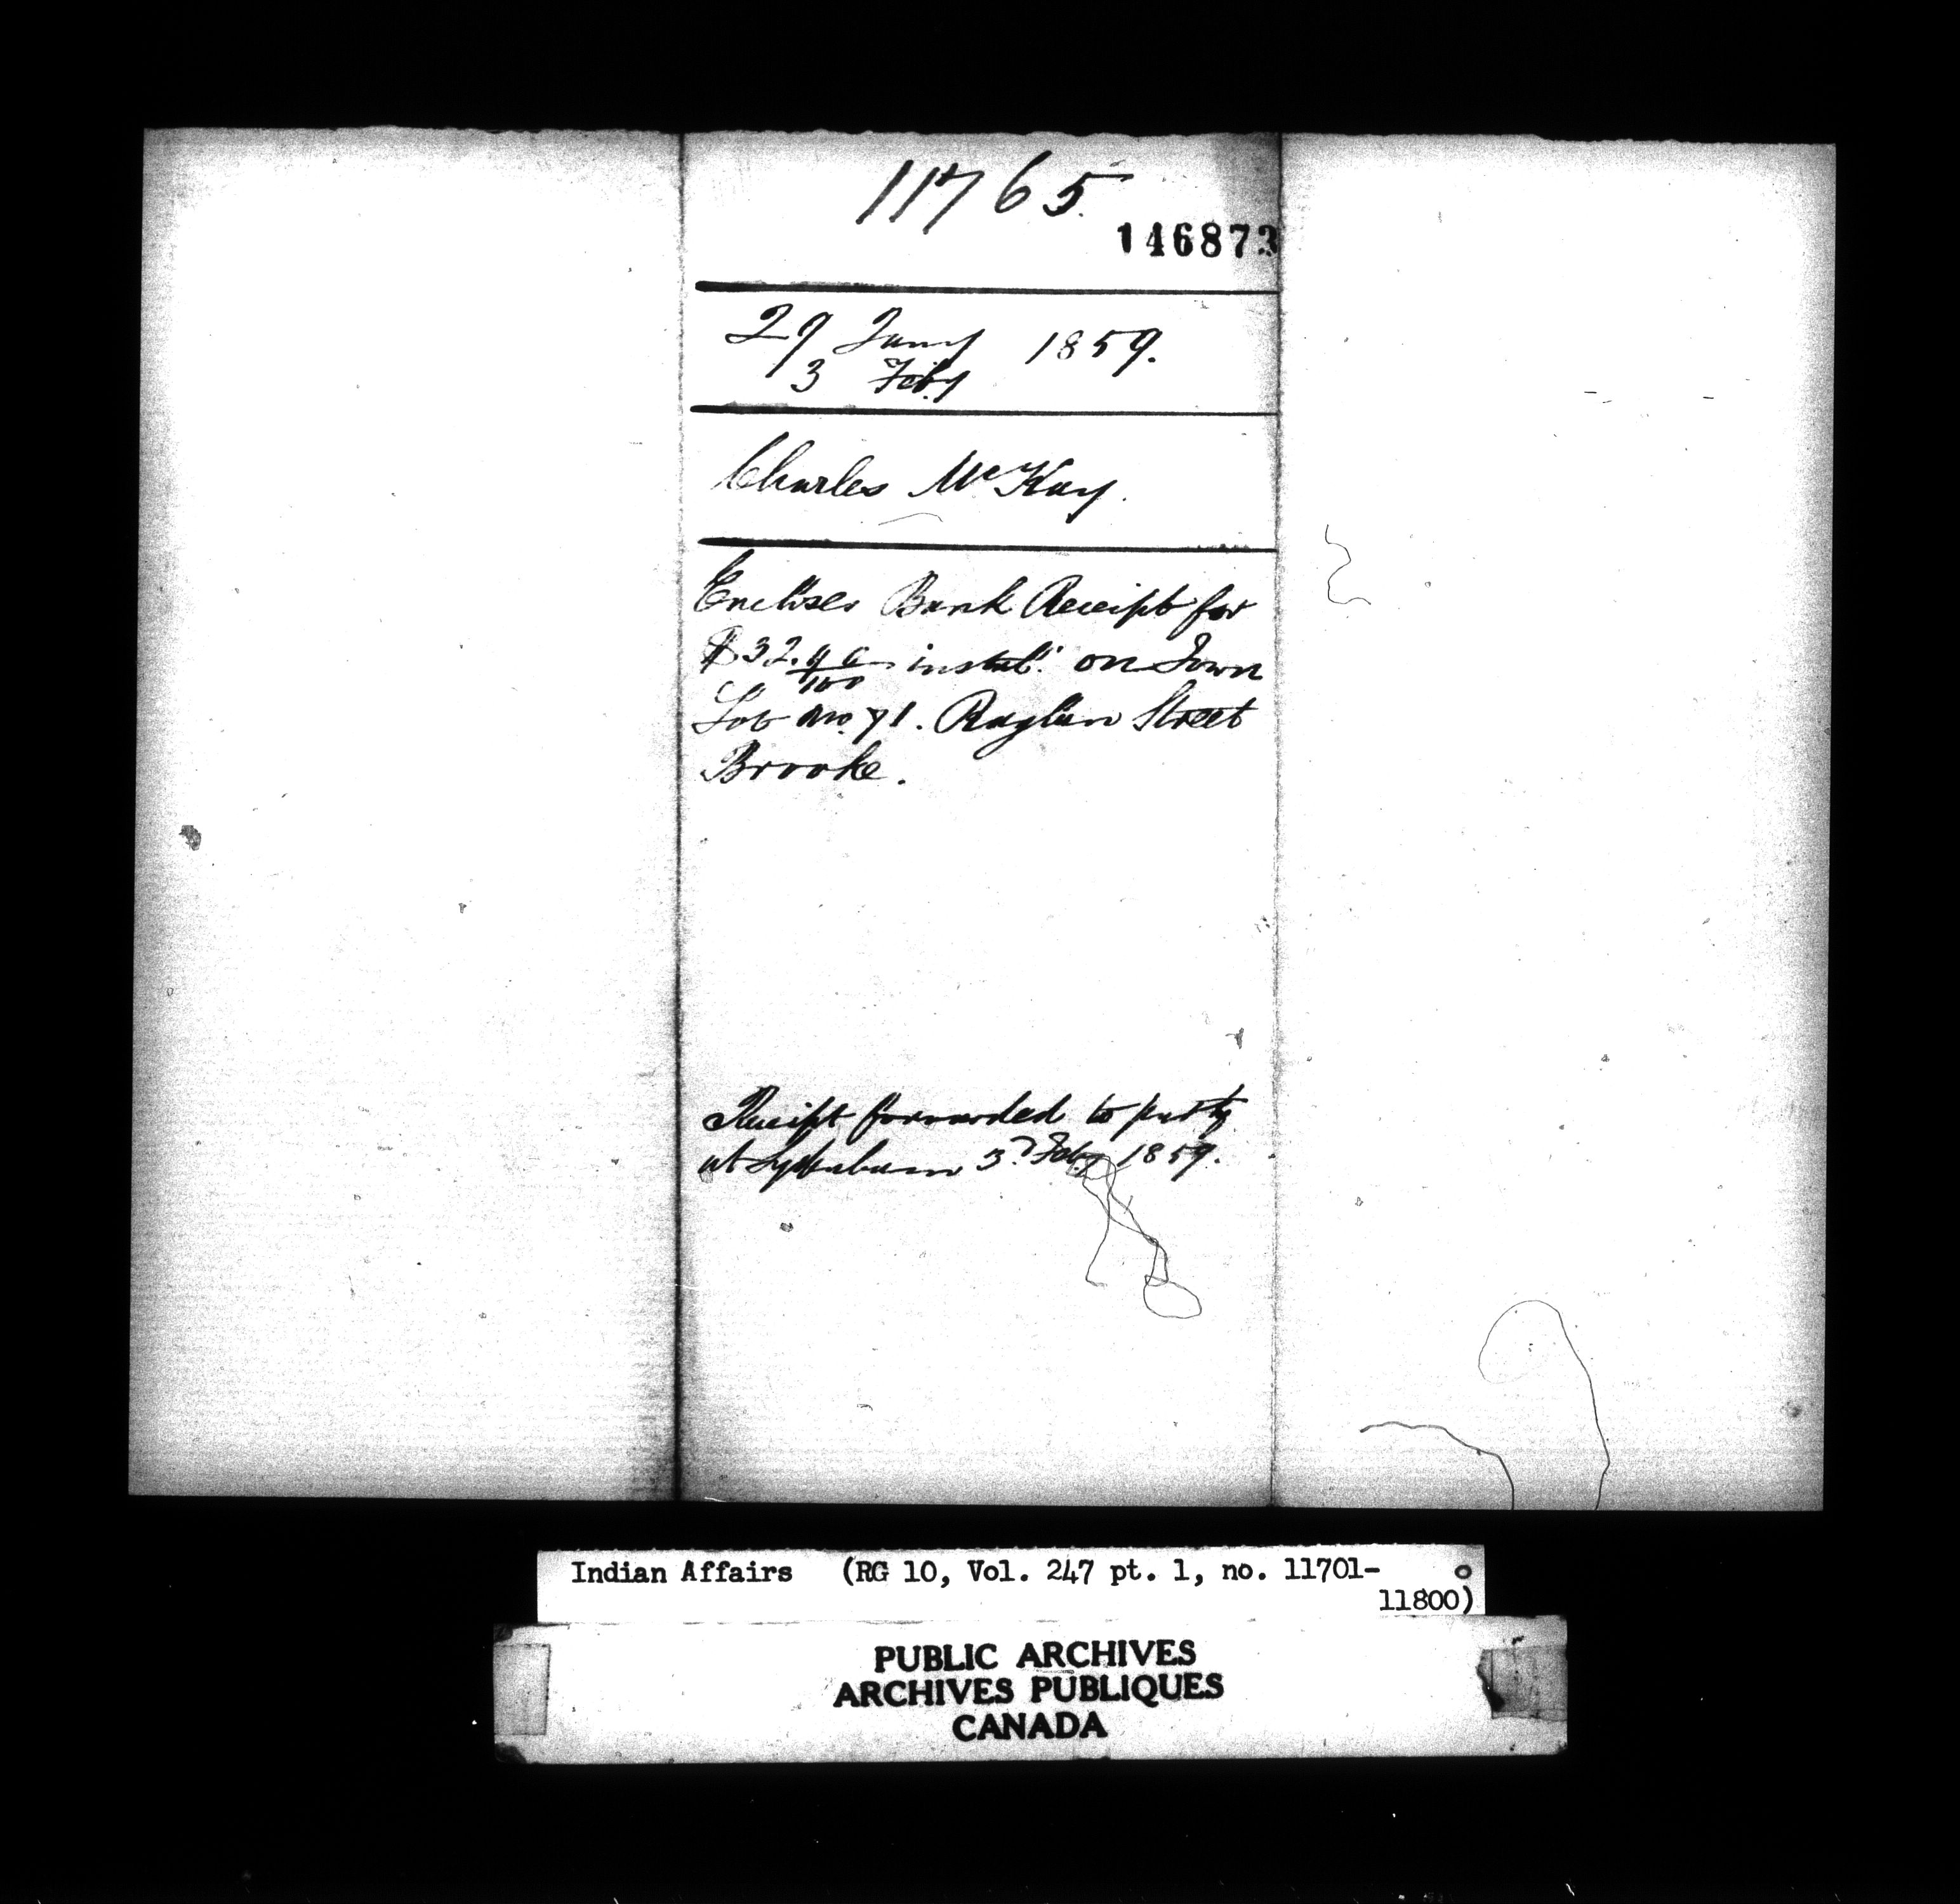 11765
146873
29 Jany 1859.
3 Feby
Charles McKay.
Encloses Bank Receipt for
$32. /100 instalt. on Town
Lot No. 71. Raglan Street
Brooke.
Receipt forwarded to party
at 3d Feby 1859.
Indian Affairs (RG 10, Vol. 247 pt. 1, no. 11701-
11800)
PUBLIC ARCHIVES
ARCHIVES PUBLIQUES
CANADA